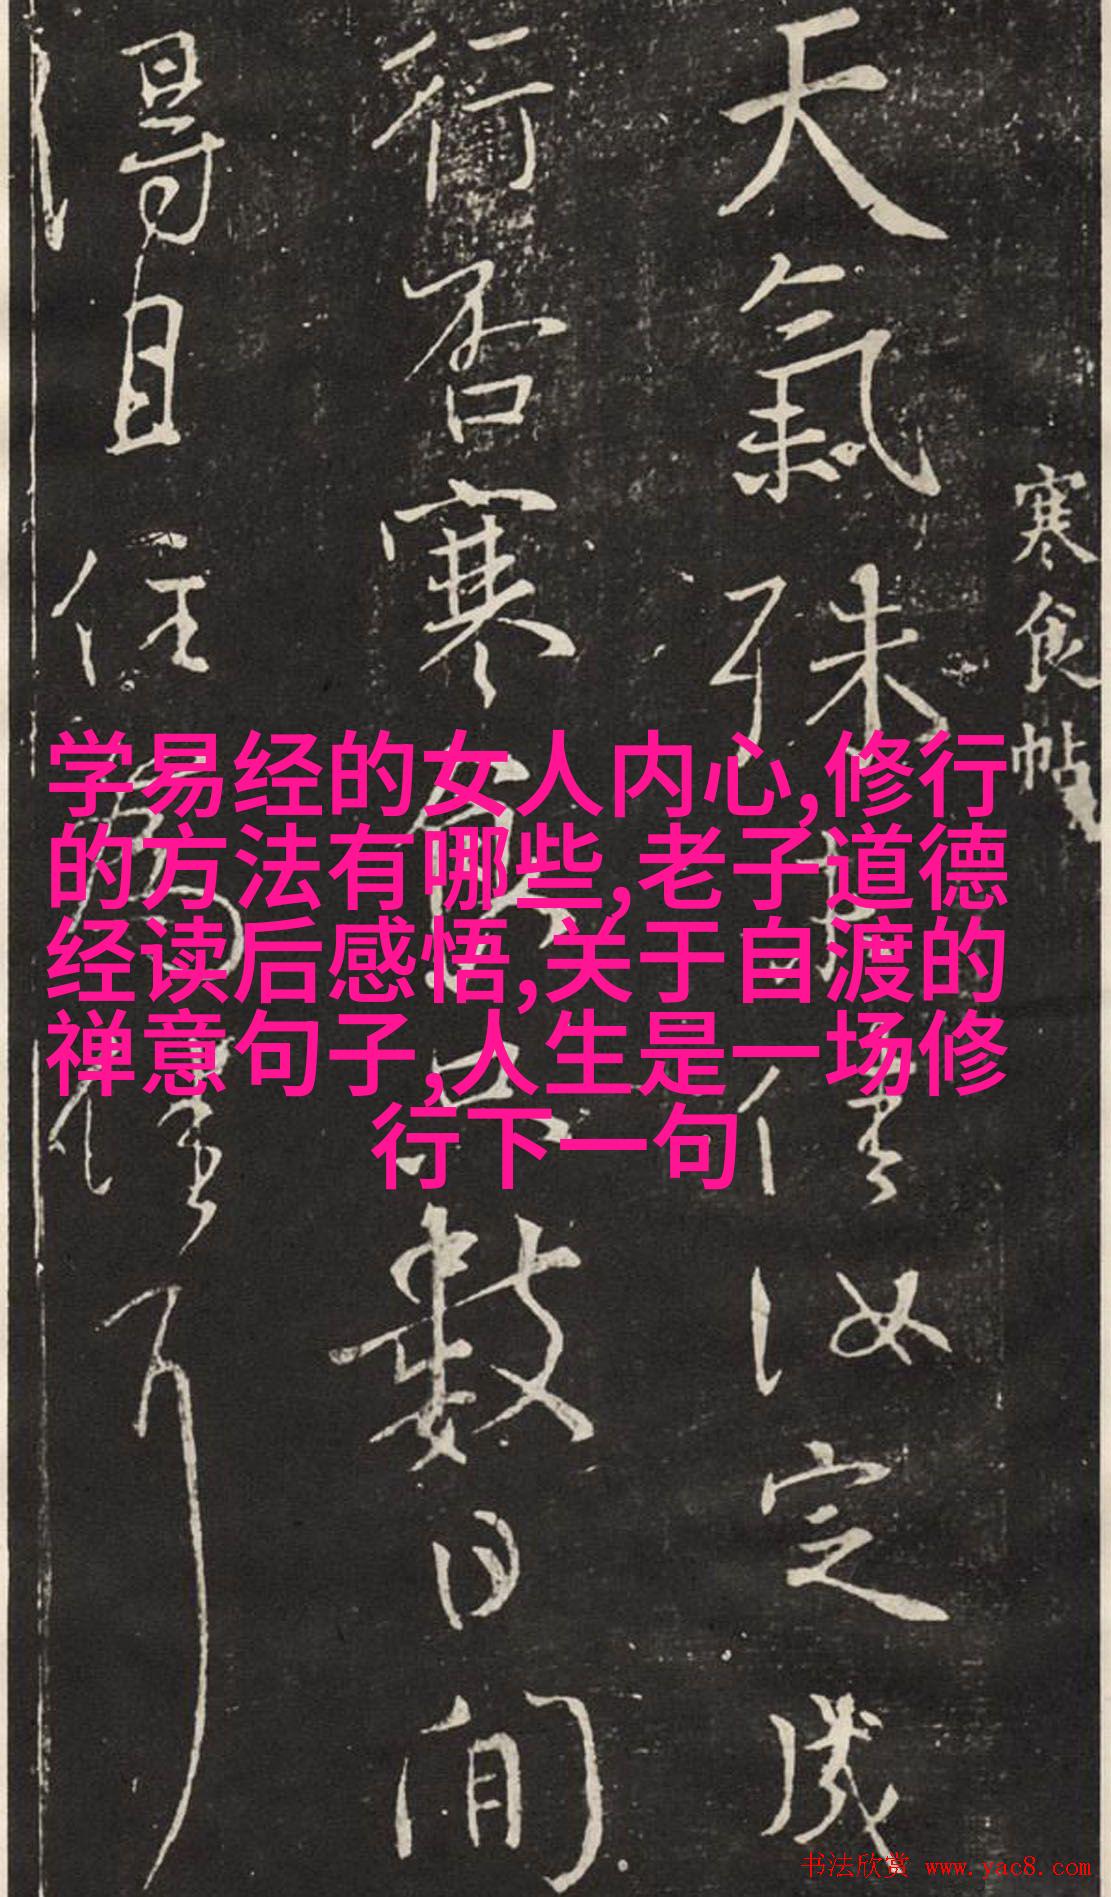 寒食帖
天氣殊未佳汝定成
行否寒食只數日間
得且住為佳耳
学易经的女人内心,修行
的方法有哪些,老子道德
经读后感悟,关于自渡的
禅意句子,人生是一场修
行下一句
书法欣赏 www.yac8.com